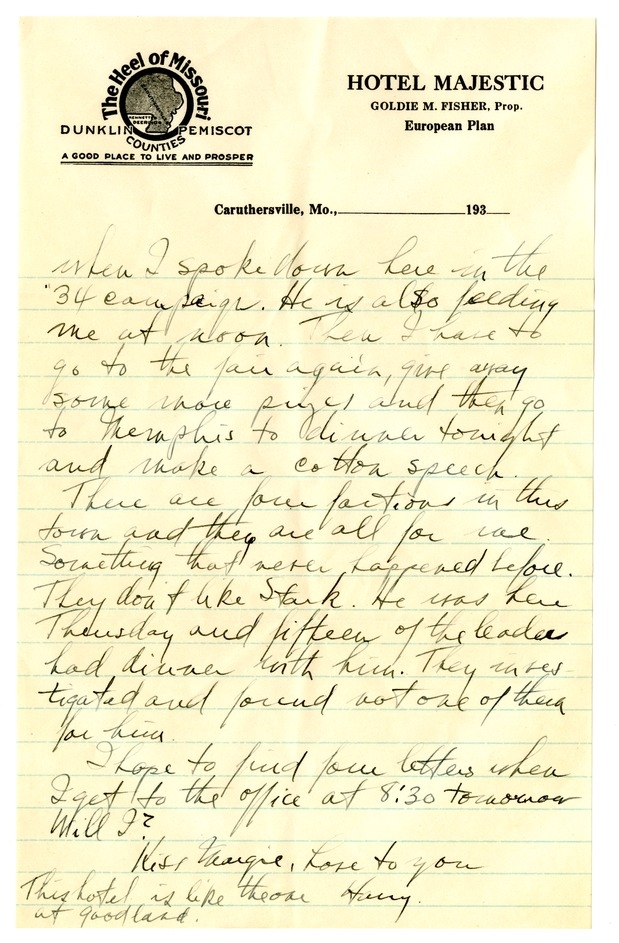 The Heel of Missouri
KENNETT
DEERING
DUNKLIN PEMISCOT
COUNTIES
A GOOD PLACE TO LIVE AND PROSPER
HOTEL MAJESTIC
GOLDIE M. FISHER, Prop.
European Plan
Caruthersville, Mo., 193
when I spoke down here in the
'34 campaign. He is also feeding
me at noon. Then I have to
go to the fair again, give away
some more prizes and then go
to Memphis to dinner tonight
and make a cotton speech.
There are four factions in this
town and they are all for me.
Something that never happened before.
They don't like Stark. He was here
Thursday and fifteen of the leaders
had dinner with him. They inves-
tigated and found not one of them
for him.
I hope to find four letters when
I get to the office at 8:30 tomorrow
Will I?
Kiss Margie, love to you
Harry.
This hotel is like the one
at Goodland.